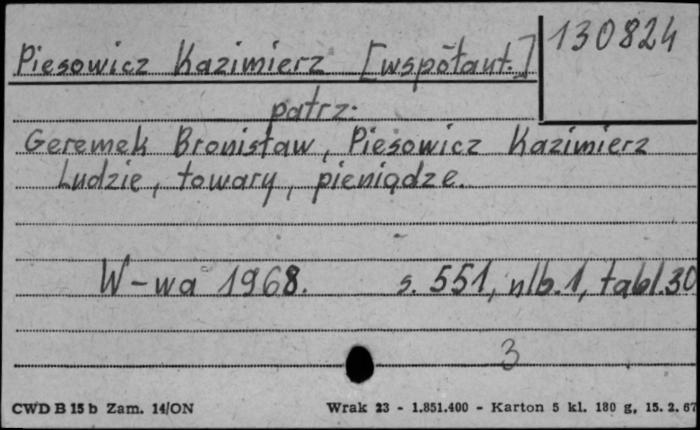 130824
Piesowicz Kazimierz [współaut.]
patrz:
Geremek Bronisław, Piesowicz Kazimierz
Ludzie, towary, pieniądze.
W-wa 1968. s. 551, nlb. 1, tabl. 30
3
CWD B 15 b Zam. 14/ON Wrak 23 - 1.851.400 - Karton 5 kl. 180 g, 15. 2. 67